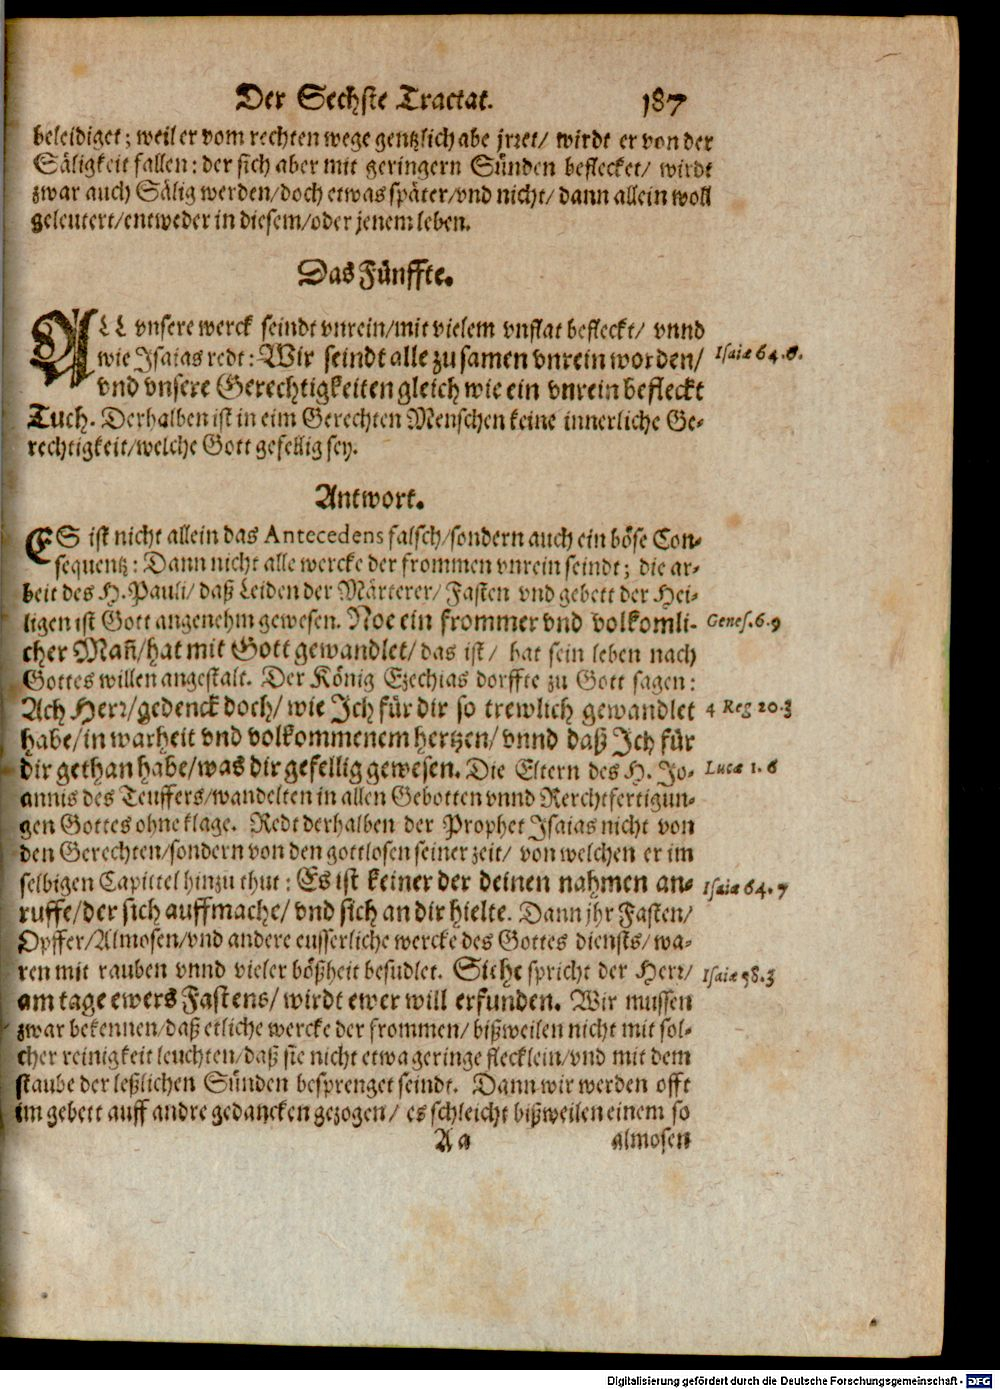 Der Sechste Tractat. 187
beleidiget; weil er vom rechten wege gentzlich abe jrret/ wirdt er von der
Säligkeit fallen: der sich aber mit geringern Sünden beflecket/ wirdt
zwar auch Sälig werden/doch etwas später/vnd nicht/ dann allein woll
geleutert/entweder in diesem/oder jenem leben.
Das Fünffte.
ALL vnsere werck seindt vnrein/mit vielem vnflat befleckt/ vnnd
wie Isaias redt: Wir seindt alle zusamen vnrein worden/ Isaiæ 64.6.
vnd vnsere Gerechtigkeiten gleich wie ein vnrein befleckt
Tuch. Derhalben ist in eim Gerechten Menschen keine innerliche Ge-
rechtigkeit/welche Gott gefellig sey.
Antwort.
ES ist nicht allein das Antecedens falsch/sondern auch ein böse Con-
sequentz: Dann nicht alle wercke der frommen vnrein seindt; die ar-
beit des H. Pauli/ daß Leiden der Märterer/ Fasten vnd gebett der Hei-
ligen ist Gott angenehm gewesen. Noe ein frommer vnd volkomli- Genes.6.9
cher Mañ/hat mit Gott gewandlet/ das ist/ hat sein leben nach
Gottes willen angestalt. Der König Ezechias dorffte zu Gott sagen:
Ach Herr/gedenck doch/ wie Ich für dir so trewlich gewandlet 4 Reg 20.3
habe/in warheit vnd volkommenem hertzen/ vnnd daß Ich für
dir gethan habe/was dir gefellig gewesen. Die Eltern des H. Jo- Lucæ 1.6
annis des Teuffers/wandelten in allen Gebotten vnnd Rerchtfertigun-
gen Gottes ohne klage. Redt derhalben der Prophet Isaias nicht von
den Gerechten/sondern von den gottlosen seiner zeit/ von welchen er im
selbigen Capittel hinzu thut: Es ist keiner der deinen nahmen an- Isaiæ 64.7
ruffe/der sich auffmache/ vnd sich an dir hielte. Dann jhr Fasten/
Opffer/Almosen/vnd andere eusserliche wercke des Gottes diensts/ wa-
ren mit rauben vnnd vieler bößheit besudlet. Sihe spricht der Herr/ Isaiæ 58.3
am tage ewers Fastens/ wirdt ewer will erfunden. Wir mussen
zwar bekennen/daß etliche wercke der frommen/ bißweilen nicht mit sol-
cher reinigkeit leuchten/daß sie nicht etwa geringe flecklein/vnd mit dem
staube der leßlichen Sünden besprenget seindt. Dann wir werden offt
im gebett auff andre gedancken gezogen/ es schleicht bißweilen einem so
Aa almosen
Digitalisierung gefördert durch die Deutsche Forschungsgemeinschaft - DFG